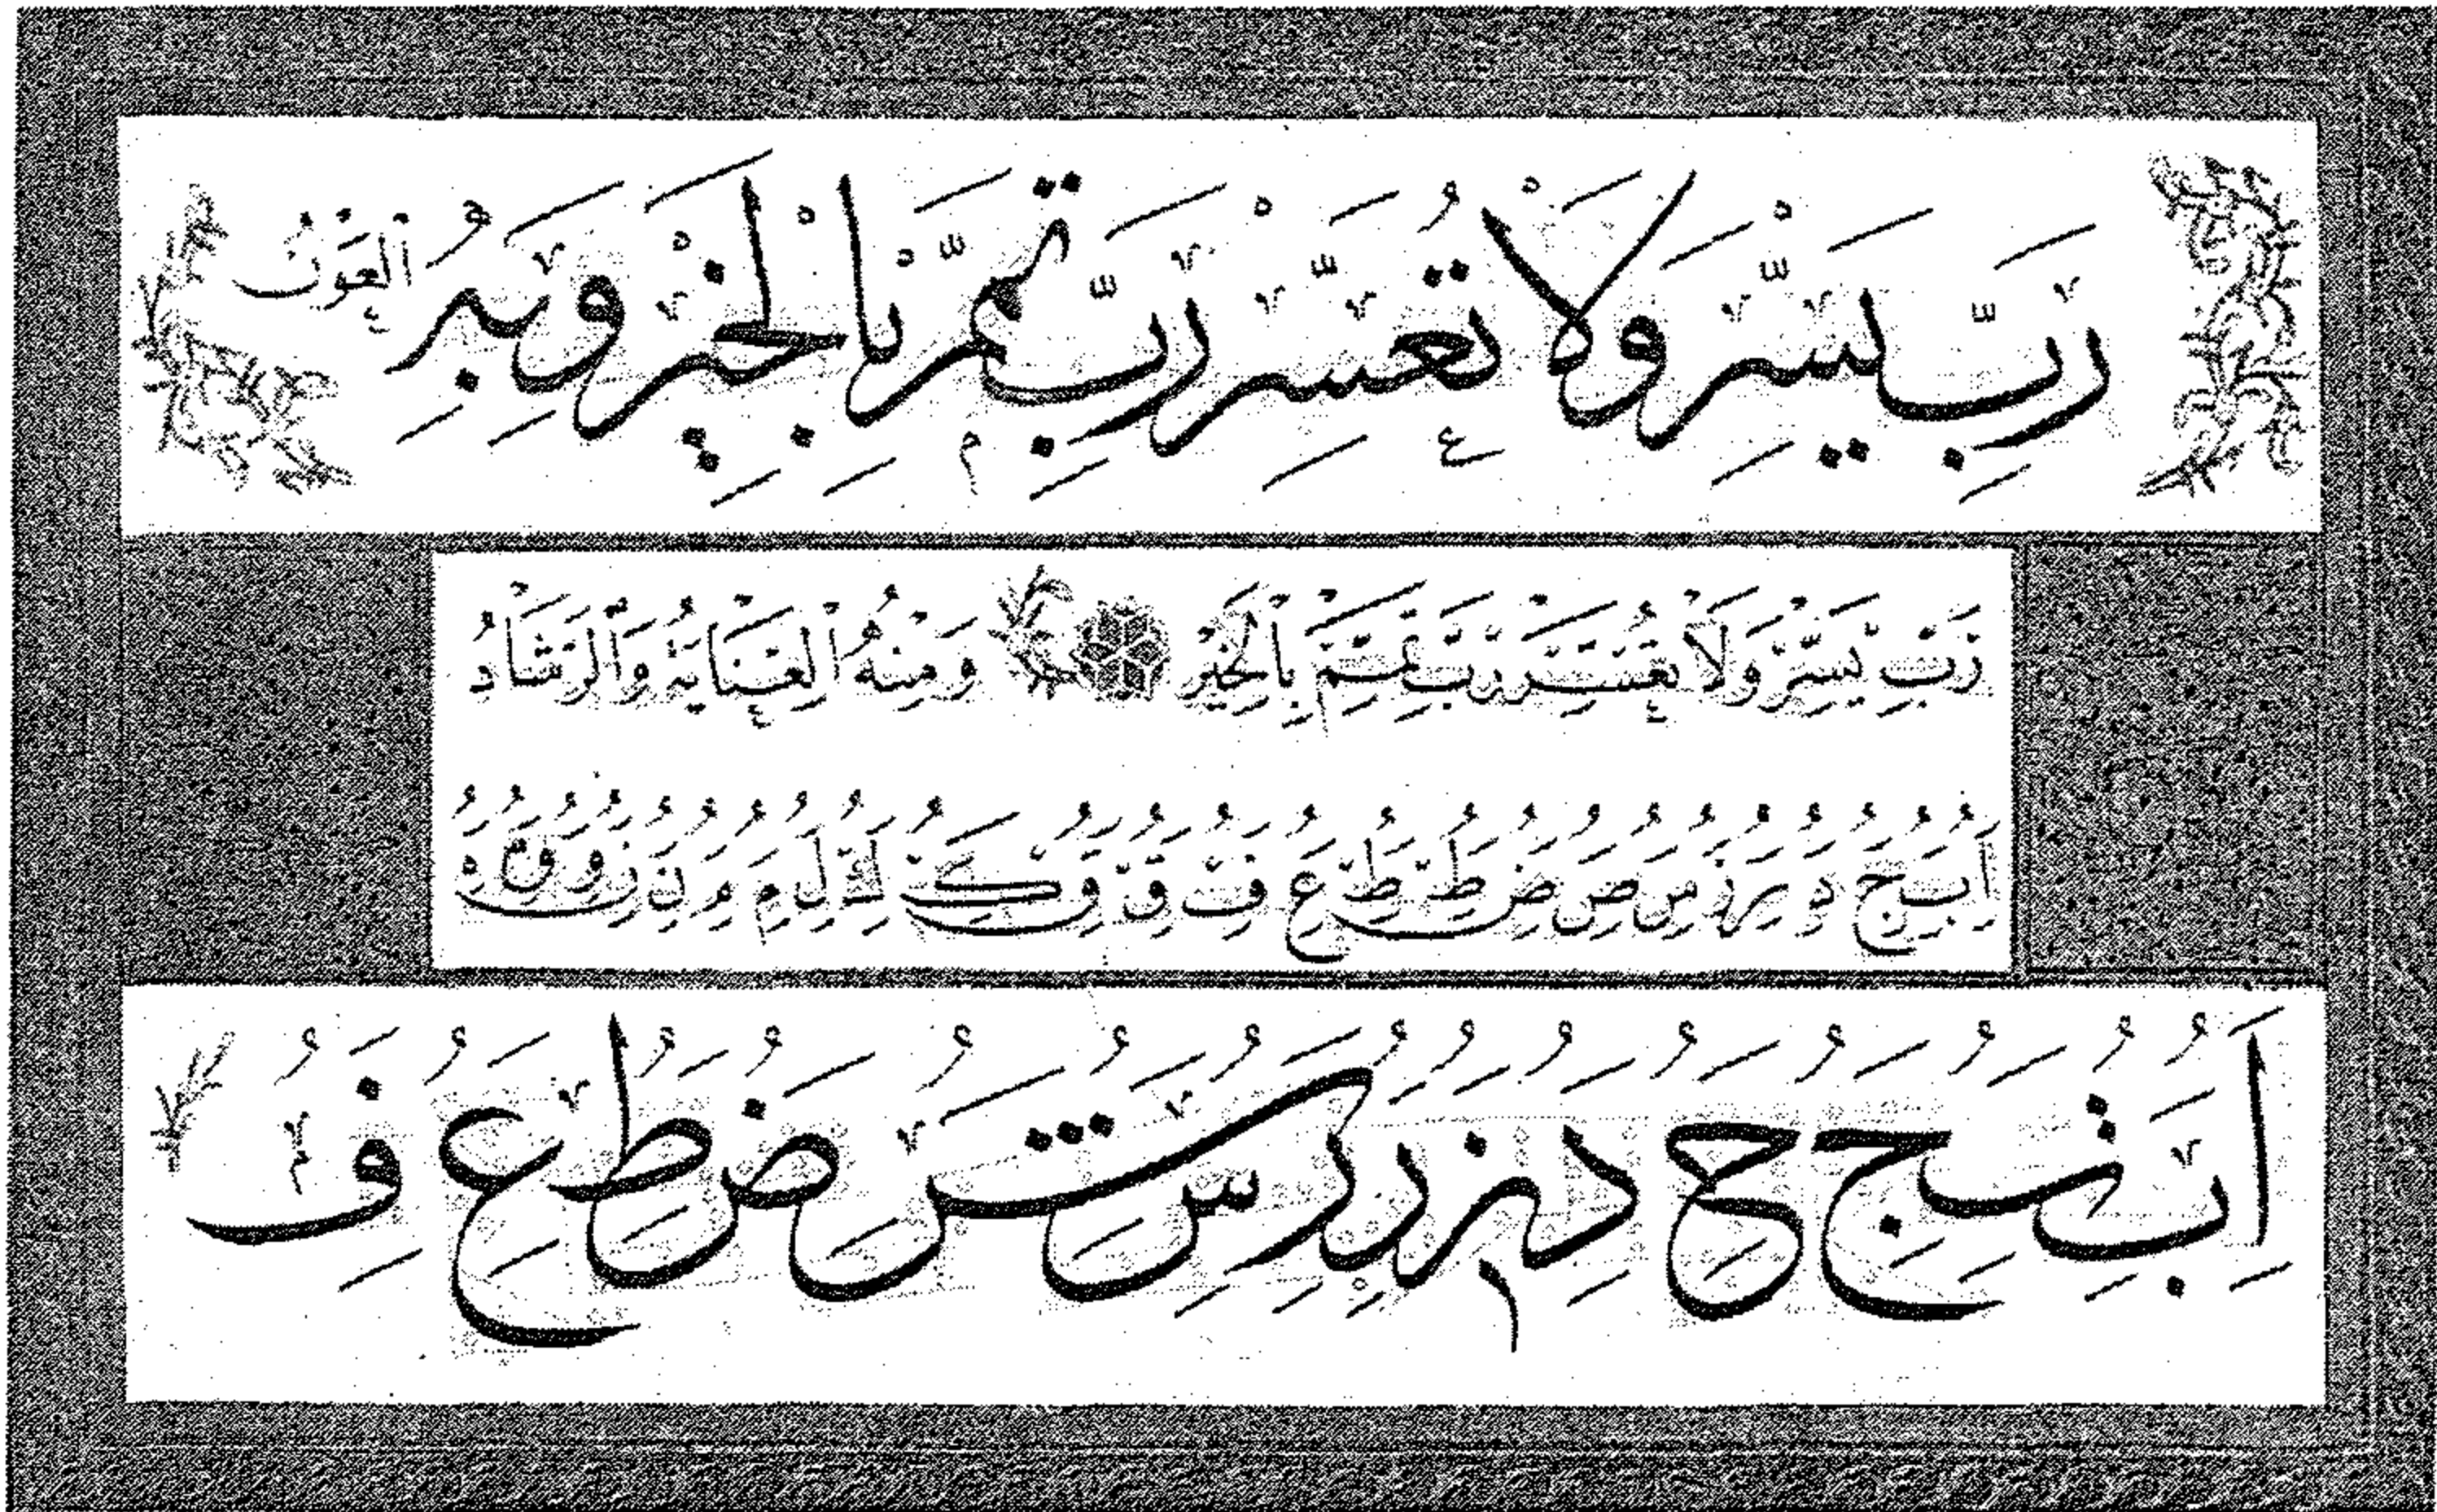 رَبِّ يَسِّرْ وَلَا تُعَسِّرْ رَبِّ تَمِّمْ بِالْخَيْرِ وَبِهِ الْعَوْنُ
رَبِّ يَسِّرْ وَلَا تُعَسِّرْ رَبِّ تَمِّمْ بِالْخَيْرِ وَمِنْهُ الْعِنَايَةُ وَالرَّشَادُ
ا ب ج د ر ض ط ط ع ف ق ك ل م م ن و
ا ب ت ج ح د ز ر ر س ش ض ط ع ف